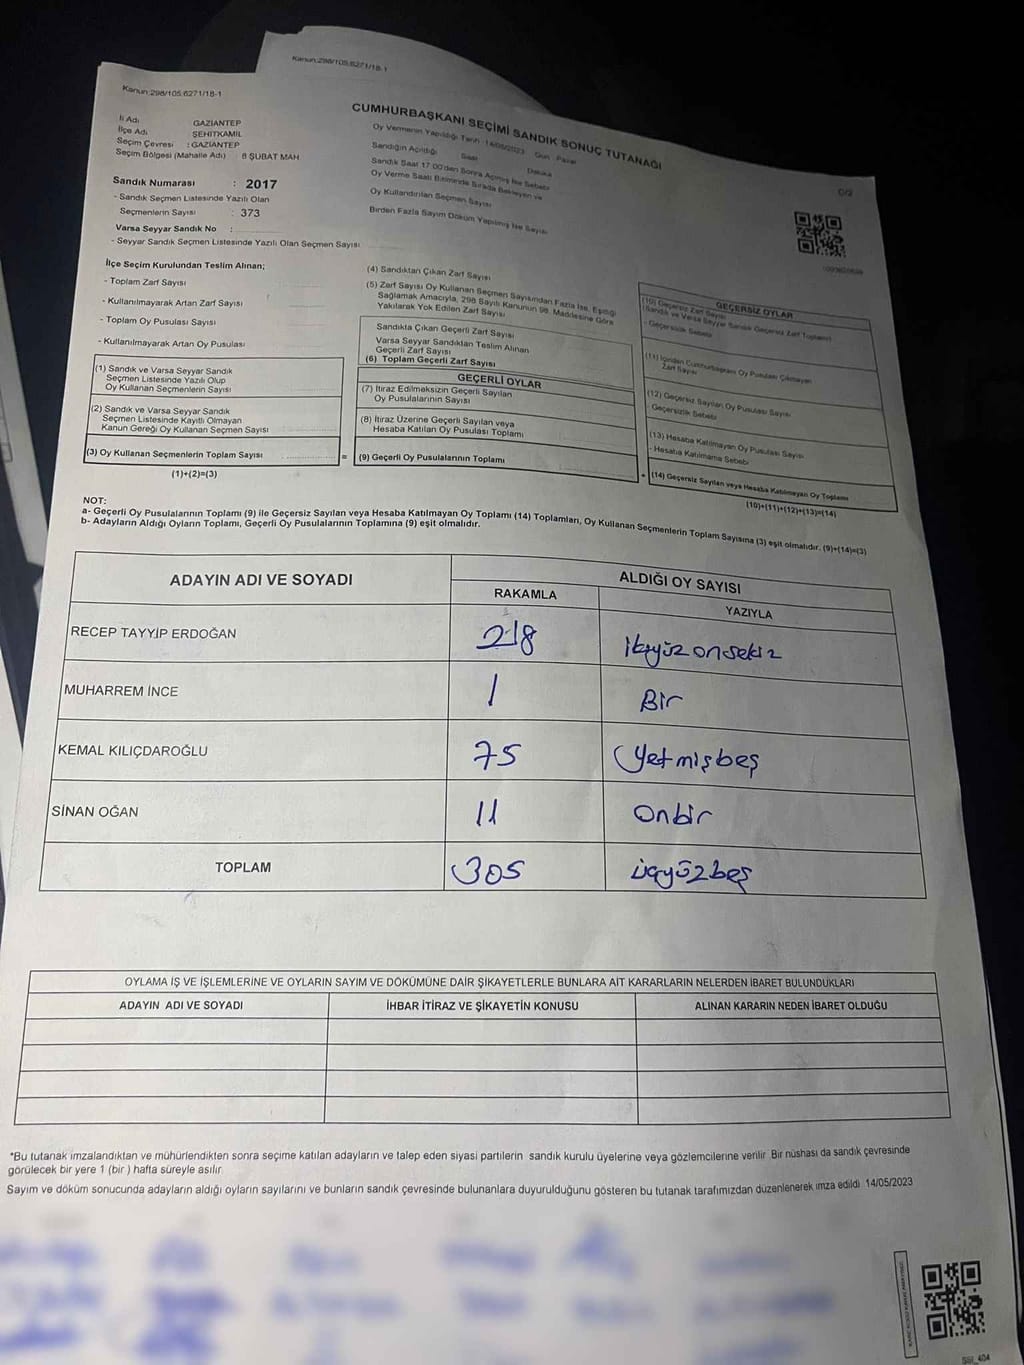 Kanun:298/105.6271/18-1
Kanun:298/105.6271/18-1
CUMHURBAŞKANI SEÇİMİ SANDIK SONUÇ TUTANAĞI
İl Adı GAZİANTEP
İlçe Adı ŞEHİTKAMİL
Seçim Çevresi : GAZİANTEP
Seçim Bölgesi (Mahalle Adı) 8 ŞUBAT MAH
Sandık Numarası : 2017
- Sandık Seçmen Listesinde Yazılı Olan
Seçmenlerin Sayısı : 373
Varsa Seyyar Sandık No :
- Seyyar Sandık Seçmen Listesinde Yazılı Olan Seçmen Sayısı
Oy Vermenin Yapıldığı Tarih 14/05/2023 Gün Pazar
Sandığın Açıldığı Saat Dakika
Sandık Saat 17.00'den Sonra Açılmış İse Sebebi
Oy Verme Saati Bitiminde Sırada Bekleyen ve
Oy Kullandırılan Seçmen Sayısı
Birden Fazla Sayım Döküm Yapılmış İse Sayısı
İlçe Seçim Kurulundan Teslim Alınan;
- Toplam Zarf Sayısı
- Kullanılmayarak Artan Zarf Sayısı
- Toplam Oy Pusulası Sayısı
- Kullanılmayarak Artan Oy Pusulası
(1) Sandık ve Varsa Seyyar Sandık
Seçmen Listesinde Yazılı Olup
Oy Kullanan Seçmenlerin Sayısı
(2) Sandık ve Varsa Seyyar Sandık
Seçmen Listesinde Kayıtlı Olmayan
Kanun Gereği Oy Kullanan Seçmen Sayısı
(3) Oy Kullanan Seçmenlerin Toplam Sayısı
(1)+(2)=(3)
=
(4) Sandıktan Çıkan Zarf Sayısı
(5) Zarf Sayısı Oy Kullanan Seçmen Sayısından Fazla İse, Eşitliği
Sağlamak Amacıyla, 298 Sayılı Kanunun 98. Maddesine Göre
Yakılarak Yok Edilen Zarf Sayısı
Sandıkta Çıkan Geçerli Zarf Sayısı
Varsa Seyyar Sandıktan Teslim Alınan
Geçerli Zarf Sayısı
(6) Toplam Geçerli Zarf Sayısı
GEÇERLİ OYLAR
(7) İtiraz Edilmeksizin Geçerli Sayılan
Oy Pusulalarının Sayısı
(8) İtiraz Üzerine Geçerli Sayılan veya
Hesaba Katılan Oy Pusulası Toplamı
(9) Geçerli Oy Pusulalarının Toplamı
+
GEÇERSİZ OYLAR
(10) Geçersiz Zarf Sayısı
(Sandık ve Varsa Seyyar Sandık Geçersiz Zarf Toplamı)
- Geçersizlik Sebebi
(11) İçinden Cumhurbaşkanı Oy Pusulası Çıkmayan
Zarf Sayısı
(12) Geçersiz Sayılan Oy Pusulası Sayısı
- Geçersizlik Sebebi
(13) Hesaba Katılmayan Oy Pusulası Sayısı
- Hesaba Katılmama Sebebi
(14) Geçersiz Sayılan veya Hesaba Katılmayan Oy Toplamı
(10)+(11)+(12)+(13)=(14)
NOT:
a- Geçerli Oy Pusulalarının Toplamı (9) ile Geçersiz Sayılan veya Hesaba Katılmayan Oy Toplamı (14) Toplamları, Oy Kullanan Seçmenlerin Toplam Sayısına (3) eşit olmalıdır. (9)+(14)=(3)
b- Adayların Aldığı Oyların Toplamı, Geçerli Oy Pusulalarının Toplamına (9) eşit olmalıdır.
ADAYIN ADI VE SOYADI ALDIĞI OY SAYISI
RAKAMLA YAZIYLA
RECEP TAYYİP ERDOĞAN 218 ikiyüzonsekiz
MUHARREM İNCE 1 Bir
KEMAL KILIÇDAROĞLU 75 Yetmişbeş
SİNAN OĞAN 11 Onbir
TOPLAM 305 üçyüzbeş
OYLAMA İŞ VE İŞLEMLERİNE VE OYLARIN SAYIM VE DÖKÜMÜNE DAİR ŞİKAYETLERLE BUNLARA AİT KARARLARIN NELERDEN İBARET BULUNDUKLARI
ADAYIN ADI VE SOYADI İHBAR İTİRAZ VE ŞİKAYETİN KONUSU ALINAN KARARIN NEDEN İBARET OLDUĞU
*Bu tutanak imzalandıktan ve mühürlendikten sonra seçime katılan adayların ve talep eden siyasi partilerin sandık kurulu üyelerine veya gözlemcilerine verilir Bir nüshası da sandık çevresinde
görülecek bir yere 1 (bir) hafta süreyle asılır
Sayım ve döküm sonucunda adayların aldığı oyların sayılarını ve bunların sandık çevresinde bulunanlara duyurulduğunu gösteren bu tutanak tarafımızdan düzenlenerek imza edildi 14/05/2023